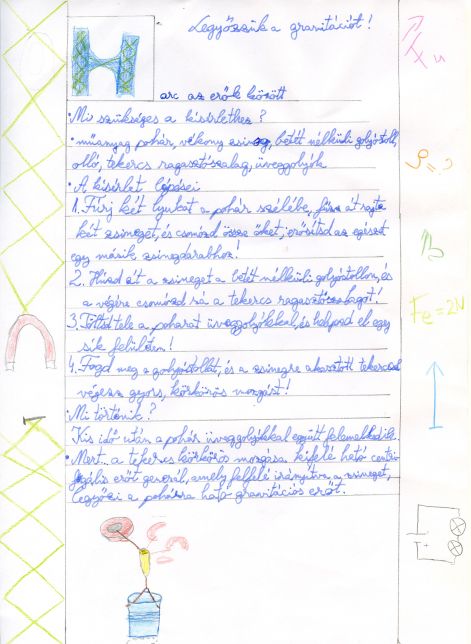 Legyőzzük a gravitációt!
H
arc az erők között
• Mi szükséges a kísérlethez?
• műanyag pohár, vékony zsineg, betét nélküli golyóstoll,
olló, tekercs ragasztószalag, üveggolyók
• A kísérlet lépései
1. Fúrj két lyukat a pohár szélébe, fűzz át rajta
két zsineget, és csomózd össze őket, erősítsd az egészet
egy másik zsinegdarabhoz!
2. Húzd át a zsineget a betét nélküli golyóstollon, és
a végére csomózd rá a tekercs ragasztószalagot!
3. Töltsd tele a poharat üveggolyókkal, és helyezd el egy
sík felületen!
4. Fogd meg a golyóstollat, és a zsinegre akasztott tekerccsel
végezz gyors, körkörös mozgást!
• Mi történik?
Kis idő után a pohár üveggolyókkal együtt felemelkedik.
• Mert... a tekercs körkörös mozgása kifelé ható centri-
fugális erőt generál, amely felfelé irányítva a zsineget,
legyőzi a pohárra ható gravitációs erőt.
Fe = 2N